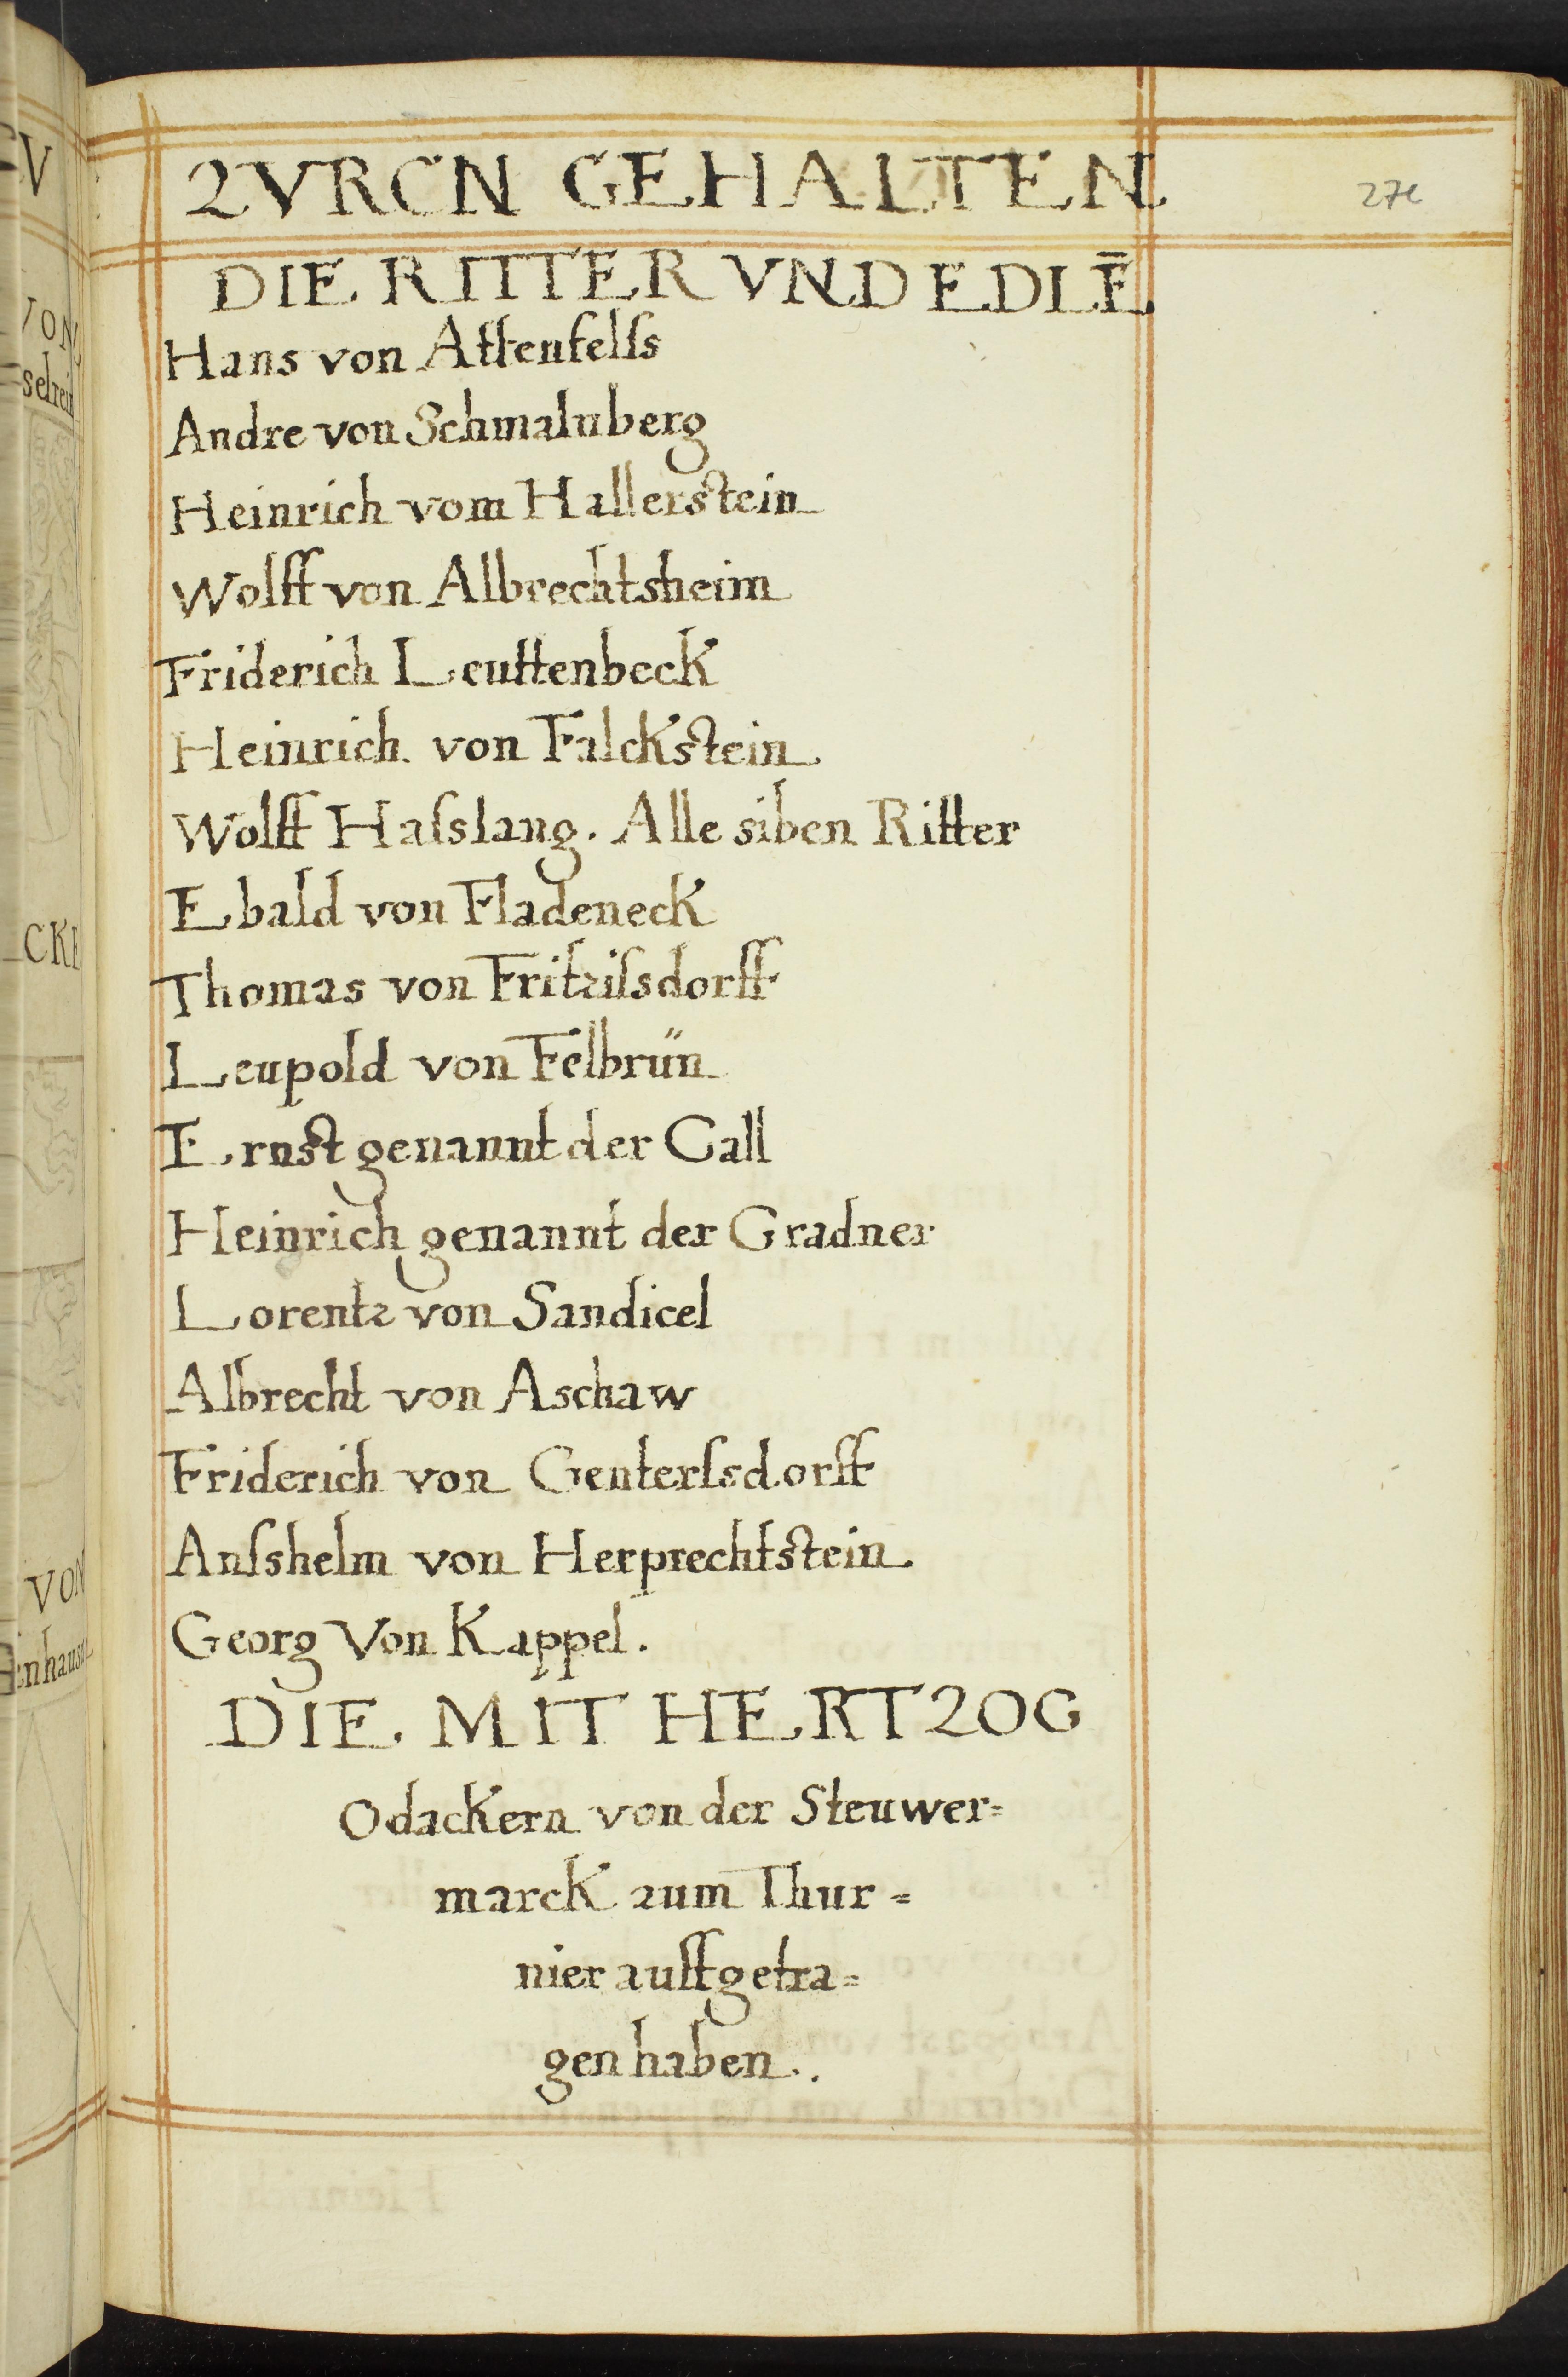 ZVRCN GEHALTEN
27c
DIE RITTER VND EDLĒ
Hans von Attenfelſs
Andre von Schmalnberg
Heinrich vom Hallerstein
Wolff von Albrechtsheim
Friderich Leuttenbeck
Heinrich von Falckstein
Wolff Haſslang. Alle siben Ritter
Ebald von Fladeneck
Thomas von Fritziſsdorff
Leupold von Felbrün
Ernst genannt der Gall
Heinrich genannt der Gradner
Lorentz von Sandicel
Albrecht von Aschaw
Friderich von Genterſsdorff
Anſshelm von Herprechtstein
Georg Von Kappel.
DIE MIT HERTZOG
Odackern von der Steuwer=
marck zum Thur=
nier auffgetra=
gen haben.